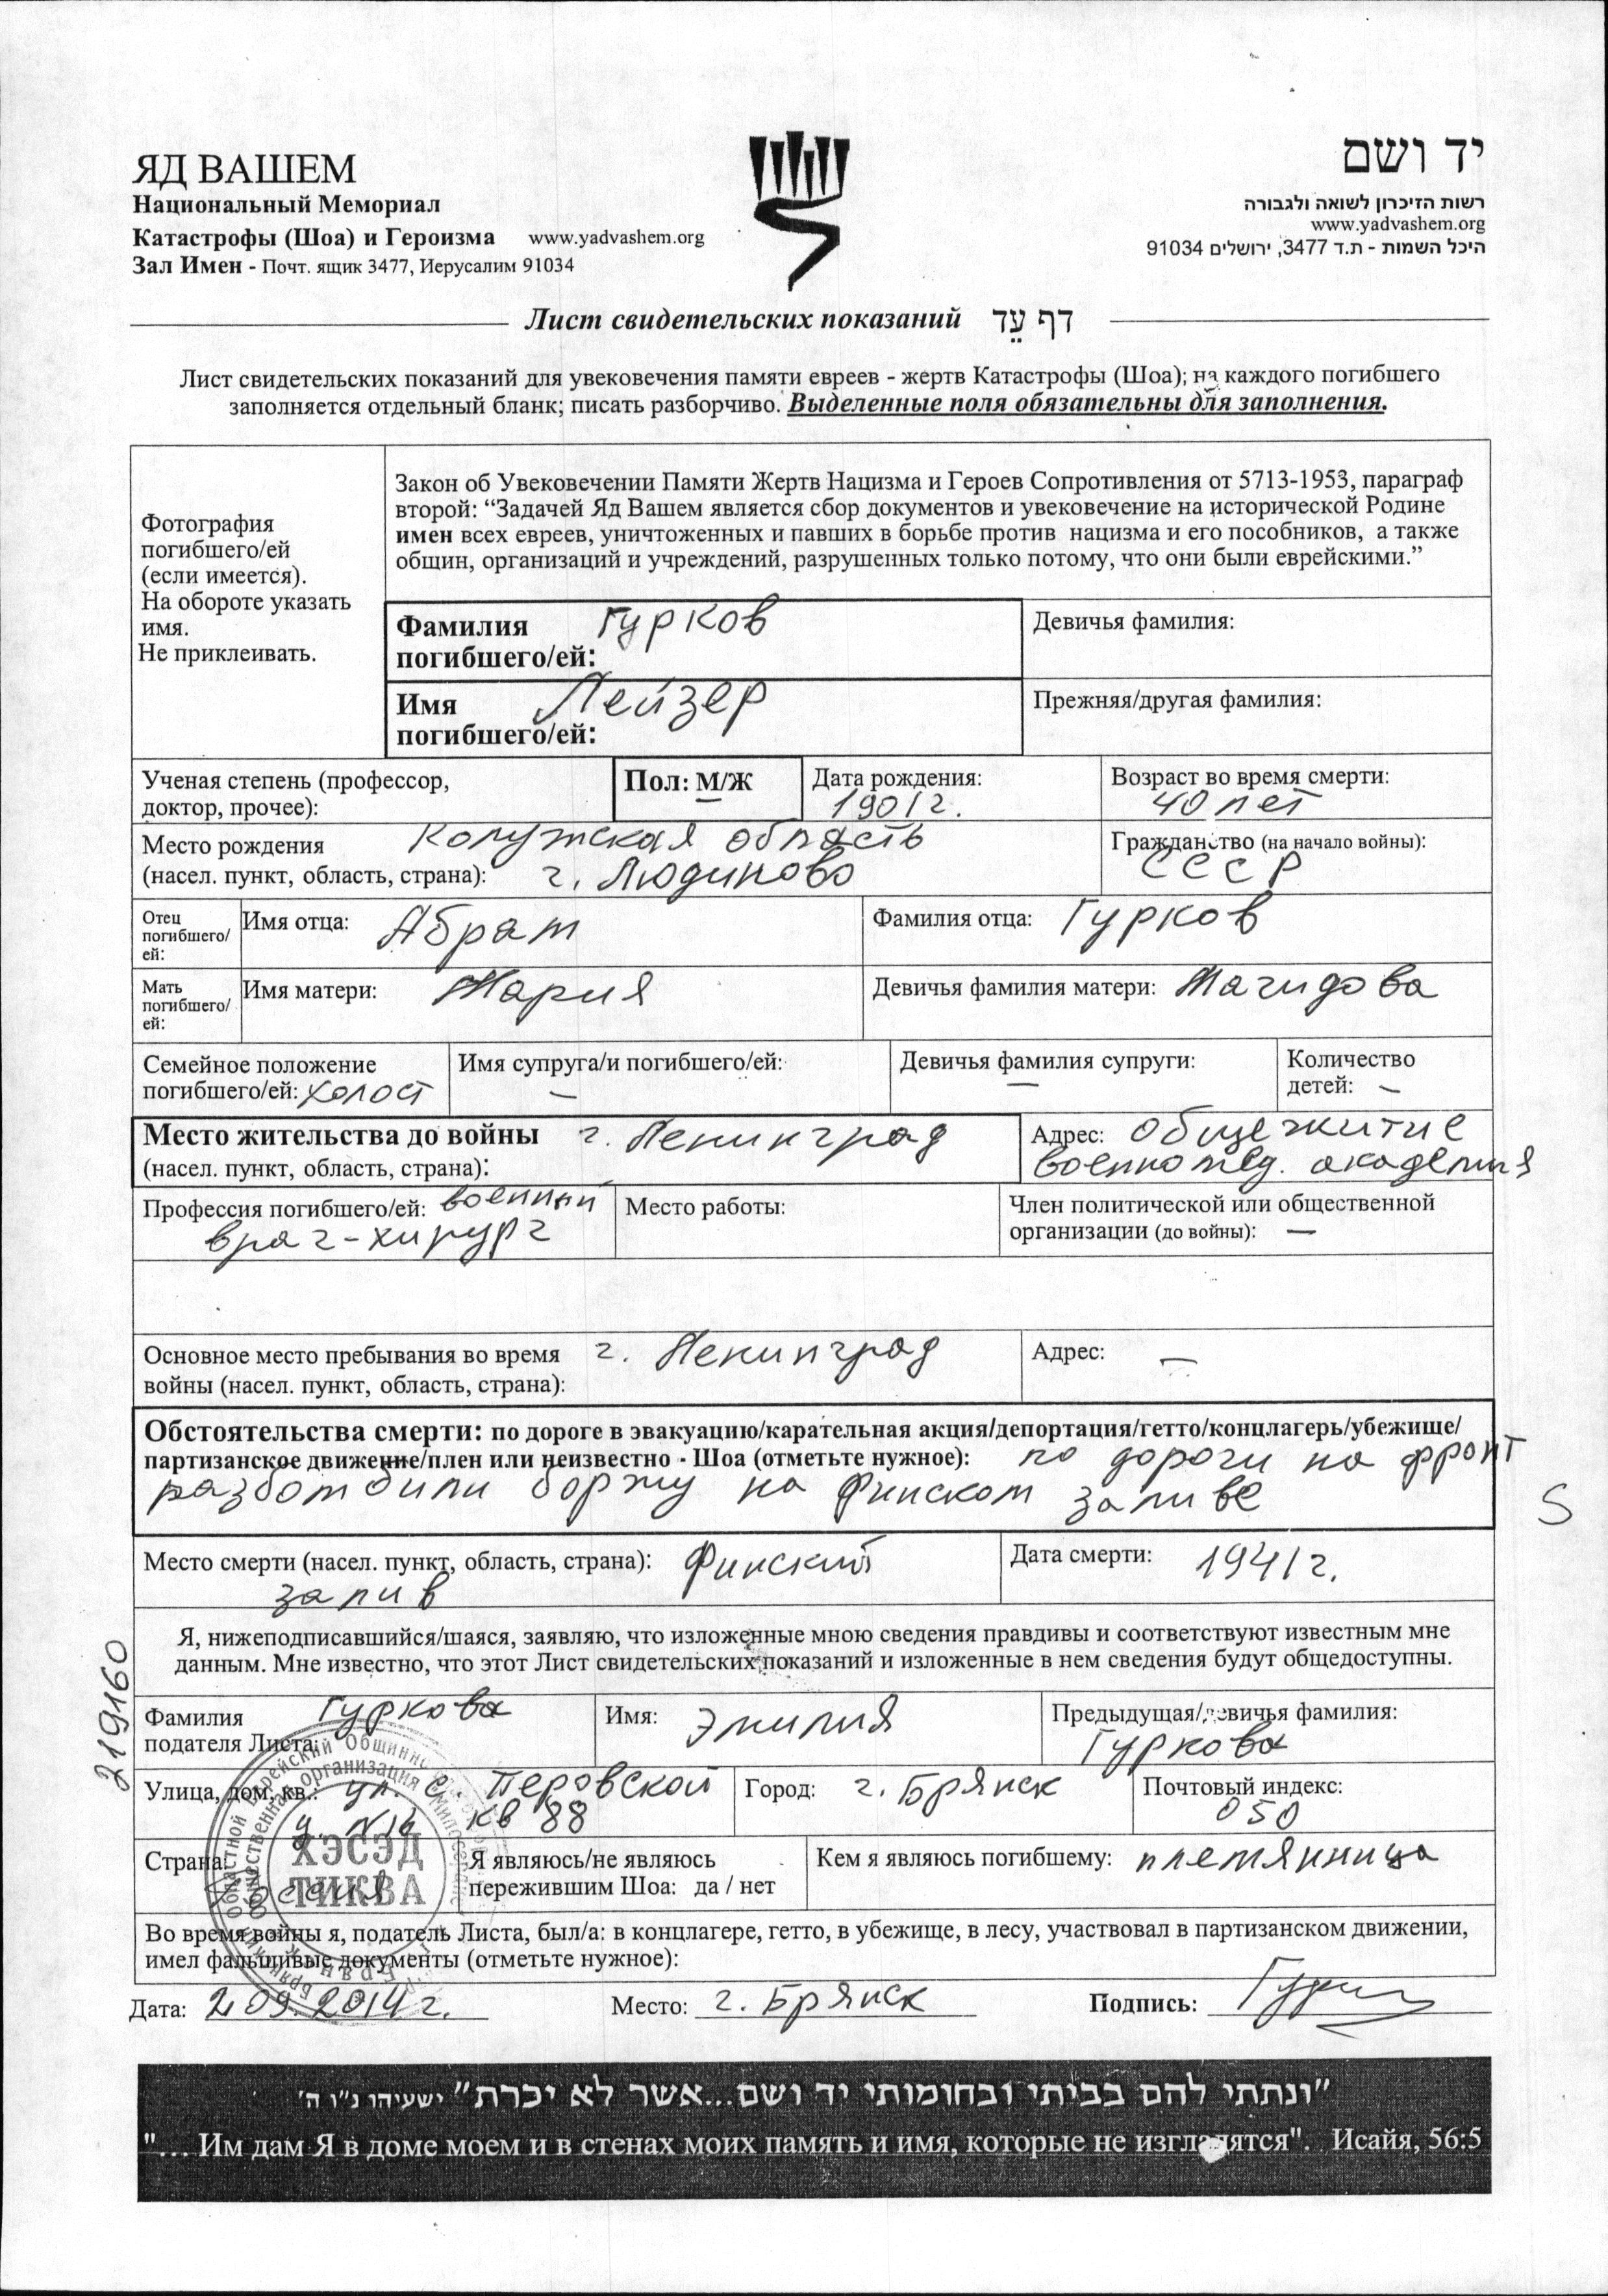 ЯД ВАШЕМ
Национальный Мемориал
Катастрофы (Шоа) и Героизма www.yadvashem.org
Зал Имен - Почт. ящик 3477, Иерусалим 91034
יד ושם
רשות הזיכרון לשואה ולגבורה
www.yadvashem.org
היכל השמות - ת.ד 3477, ירושלים 91034
Лист свидетельских показаний דף עֵד
Лист свидетельских показаний для увековечения памяти евреев - жертв Катастрофы (Шоа); на каждого погибшего
заполняется отдельный бланк; писать разборчиво. Выделенные поля обязательны для заполнения.
Фотография
погибшего/ей
(если имеется).
На обороте указать
имя.
Не приклеивать.
Закон об Увековечении Памяти Жертв Нацизма и Героев Сопротивления от 5713-1953, параграф
второй: “Задачей Яд Вашем является сбор документов и увековечение на исторической Родине
имен всех евреев, уничтоженных и павших в борьбе против нацизма и его пособников, а также
общин, организаций и учреждений, разрушенных только потому, что они были еврейскими.”
Фамилия погибшего/ей: Гурков
Девичья фамилия:
Имя погибшего/ей: Лейзер
Прежняя/другая фамилия:
Ученая степень (профессор,
доктор, прочее):
Пол: М/Ж
Дата рождения:
1901г.
Возраст во время смерти:
40 лет
Место рождения Колужская область
(насел. пункт, область, страна): г. Людиново
Гражданство (на начало войны):
СССР
Отец
погибшего/
ей:
Имя отца: Абрам
Фамилия отца: Гурков
Мать
погибшего/
ей:
Имя матери: Мария
Девичья фамилия матери: Магидова
Семейное положение
погибшего/ей: холост
Имя супруга/и погибшего/ей:
—
Девичья фамилия супруги:
—
Количество
детей: —
Место жительства до войны г. Ленинград
(насел. пункт, область, страна):
Адрес: общежитие
военномед. академия
Профессия погибшего/ей: военный
врач-хирург
Место работы:
Член политической или общественной
организации (до войны): —
Основное место пребывания во время г. Ленинград
войны (насел. пункт, область, страна):
Адрес: —
Обстоятельства смерти: по дороге в эвакуацию/карательная акция/депортация/гетто/концлагерь/убежище/
партизанское движение/плен или неизвестно - Шоа (отметьте нужное): по дороги на фронт
разбомбили боржу на Финском заливе
S
Место смерти (насел. пункт, область, страна): Финский
залив
Дата смерти: 1941г.
Я, нижеподписавшийся/шаяся, заявляю, что изложенные мною сведения правдивы и соответствуют известным мне
данным. Мне известно, что этот Лист свидетельских показаний и изложенные в нем сведения будут общедоступны.
219160
Фамилия Гуркова
подателя Листа:
Имя: Эмилия
Предыдущая/девичья фамилия:
Гуркова
Улица, дом, кв.: ул. С. Перовской
кв 88
Город: г. Брянск
Почтовый индекс:
050
Страна:
Россия
ХЭСЭД
ТИКВА
Я являюсь/не являюсь
пережившим Шоа: да / нет
Кем я являюсь погибшему: племянница
Во время войны я, податель Листа, был/а: в концлагере, гетто, в убежище, в лесу, участвовал в партизанском движении,
имел фальшивые документы (отметьте нужное):
Дата: 2.09.2014г.
Место: г. Брянск
Подпись:
"ונתתי להם בביתי ובחומותי יד ושם...אשר לא יכרת" ישעיהו נ"ו ה'
"... Им дам Я в доме моем и в стенах моих память и имя, которые не изгладятся". Исайя, 56:5